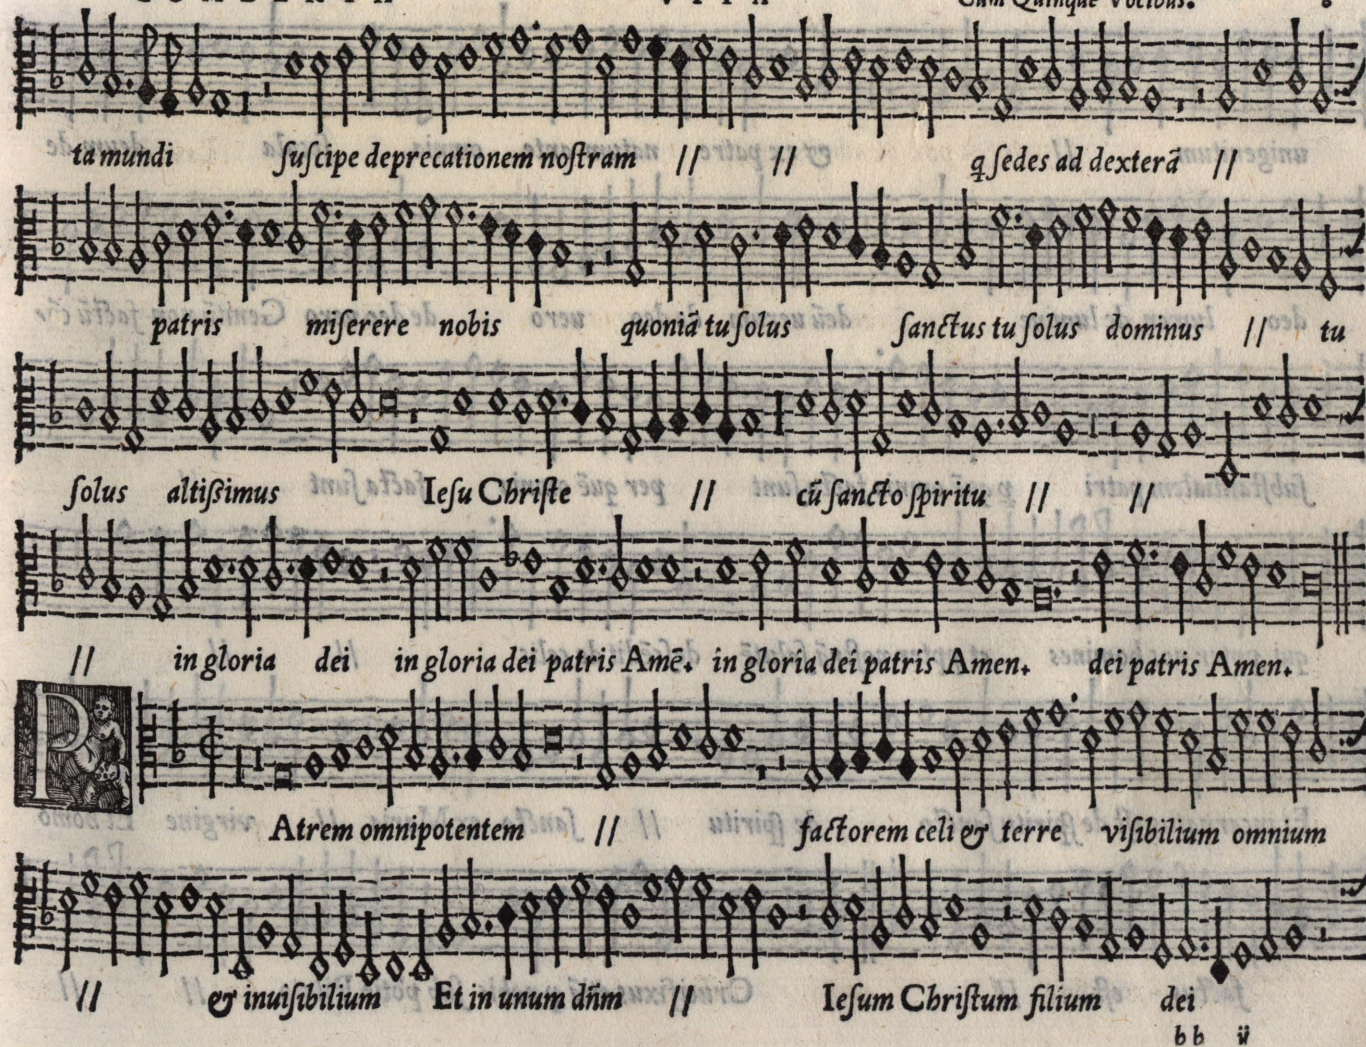 Cum Quinque Vocibus.
ta mundi ſuſcipe deprecationem noſtram // // q ſedes ad dexterã //
patris miſerere nobis quoniã tu ſolus ſanctus tu ſolus dominus // tu
ſolus altiſsimus Ieſu Chriſte // cũ ſancto ſpiritu // //
// in gloria dei in gloria dei patris Amẽ. in gloria dei patris Amen. dei patris Amen.
P
Atrem omnipotentem // factorem celi & terre viſibilium omnium
// & inuiſibilium Et in unum dñm // Ieſum Chriſtum filium dei
bb ij